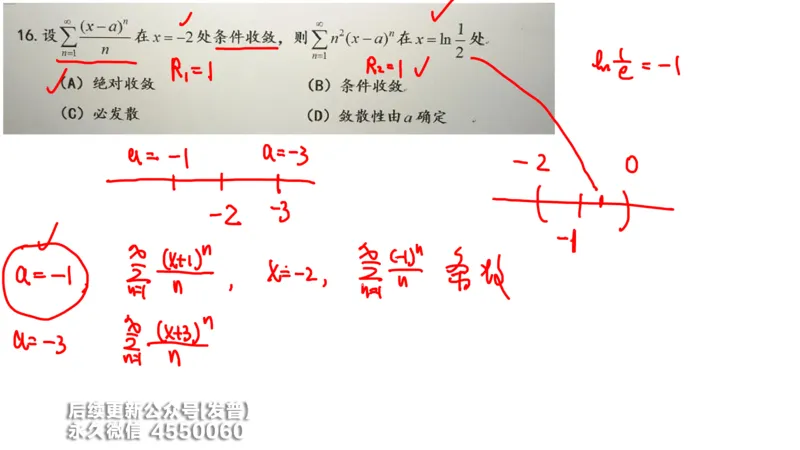 16. 设 $\sum_{n=1}^{\infty}\frac{(x-a)^n}{n}$ 在 $x=-2$ 处条件收敛，则 $\sum_{n=1}^{\infty}n^2(x-a)^n$ 在 $x=\ln\frac{1}{2}$ 处
R₁=1 R₂=1
(A) 绝对收敛 (B) 条件收敛
(C) 必发散 (D) 敛散性由a确定
ln 1/e = -1
a=-1 a=-3
-2 -3
-2 0
-1
a=-1 $\sum_{n=1}^{\infty}\frac{(x+1)^n}{n}$, x=-2, $\sum_{n=1}^{\infty}\frac{(-1)^n}{n}$ 条收
a=-3 $\sum_{n=1}^{\infty}\frac{(x+3)^n}{n}$
后续更新公众号[发普]
永久微信 4550060